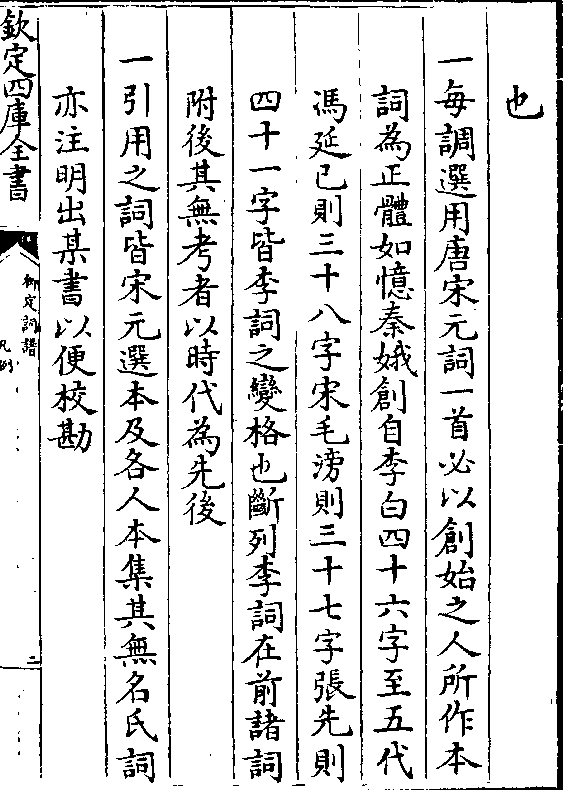 也
一每調選用唐宋元詞一首必以創始之人所作本
詞為正體如憶秦娥創自李白四十六字至五代
馮延巳則三十八字宋毛滂則三十七字張先則
四十一字皆李詞之變格也斷列李詞在前諸詞
附後其無考者以時代為先後
一引用之詞皆宋元選本及各人本集其無名氏詞
亦注明出某書以便校勘
欽定四庫全書
御定詞譜
凡例
二